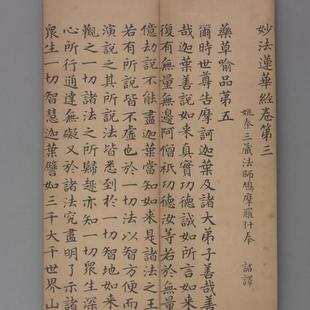 妙法蓮華經卷第三
姚秦三藏法師鳩摩羅什奉　詔譯
藥草喻品第五
爾時世尊告摩訶迦葉及諸大弟子善哉善
哉迦葉善說如來真實功德誠如所言如來
復有無量無邊阿僧祇功德汝等若於無量
億劫說不能盡迦葉當知如來是諸法之王
若有所說皆不虛也於一切法以智方便而
演說之其所說法皆悉到於一切智地如來
觀知一切諸法之所歸趣亦知一切眾生深
心所行通達無礙又於諸法究盡明了示諸
眾生一切智慧迦葉譬如三千大千世界山